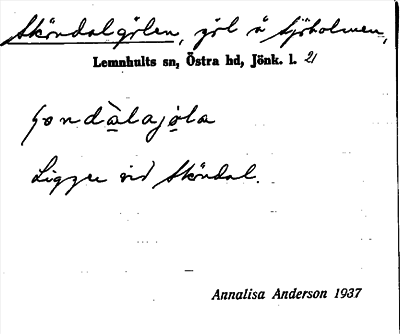 Sköndalgölen, göl å Sjöholmen,
Lemnhults sn, Östra hd, Jönk. l. 21
dàlajo̲la
Ligger vid Sköndal.
Annalisa Anderson 1937